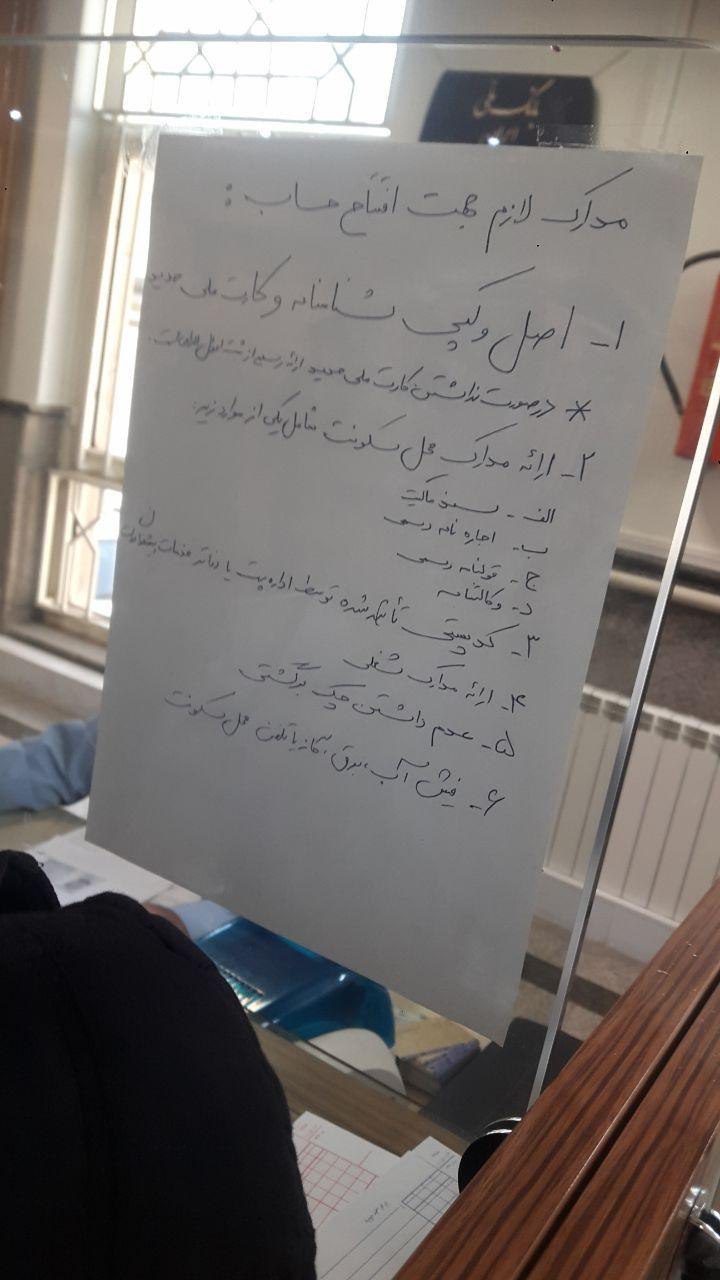 بانک ملی
ایران
مدارک لازم جهت افتتاح حساب :
۱- اصل و کپی شناسنامه و کارت ملی جدید
* درصورت نداشتن کارت ملی جدید ارائه رسید از ثبت احوال الزامی است.
۲- ارائه مدارک محل سکونت شامل یکی از موارد زیر:
الف - سند مالکیت
ب- اجاره نامه رسمی
ج- قولنامه رسمی
د- وکالتنامه
۳- کدپستی تأیید شده توسط اداره پست یا دفاتر خدمات پیشخوان
۴- ارائه مدارک شغلی
۵- عدم داشتن چک برگشتی
۶- فیش آب، برق، گاز یا تلفن محل سکونت